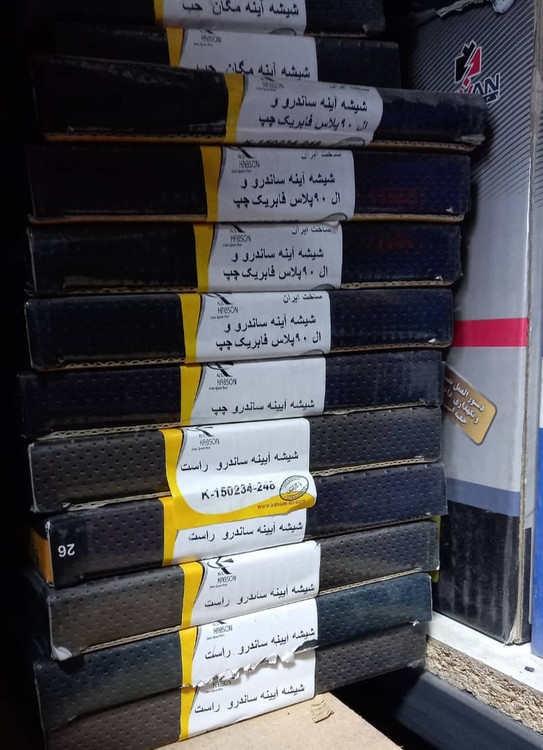 شیشه آینه مگان چپ
شیشه آینه مگان چپ
شیشه آینه ساندرو و
ال ۹۰ پلاس فابریک چپ
ساخت ایران
KABSON
شیشه آینه ساندرو و
ال ۹۰ پلاس فابریک چپ
ساخت ایران
KABSON
شیشه آینه ساندرو و
ال ۹۰ پلاس فابریک چپ
ساخت ایران
KABSON
شیشه آینه ساندرو و
ال ۹۰ پلاس فابریک چپ
KABSON
شیشه آیینه ساندرو چپ
KABSON
شیشه آیینه ساندرو راست
K-150234-248
شیشه آیینه ساندرو راست
26
KABSON
شیشه آیینه ساندرو راست
KABSON
شیشه آیینه ساندرو راست
شیشه آیینه ساندرو راست